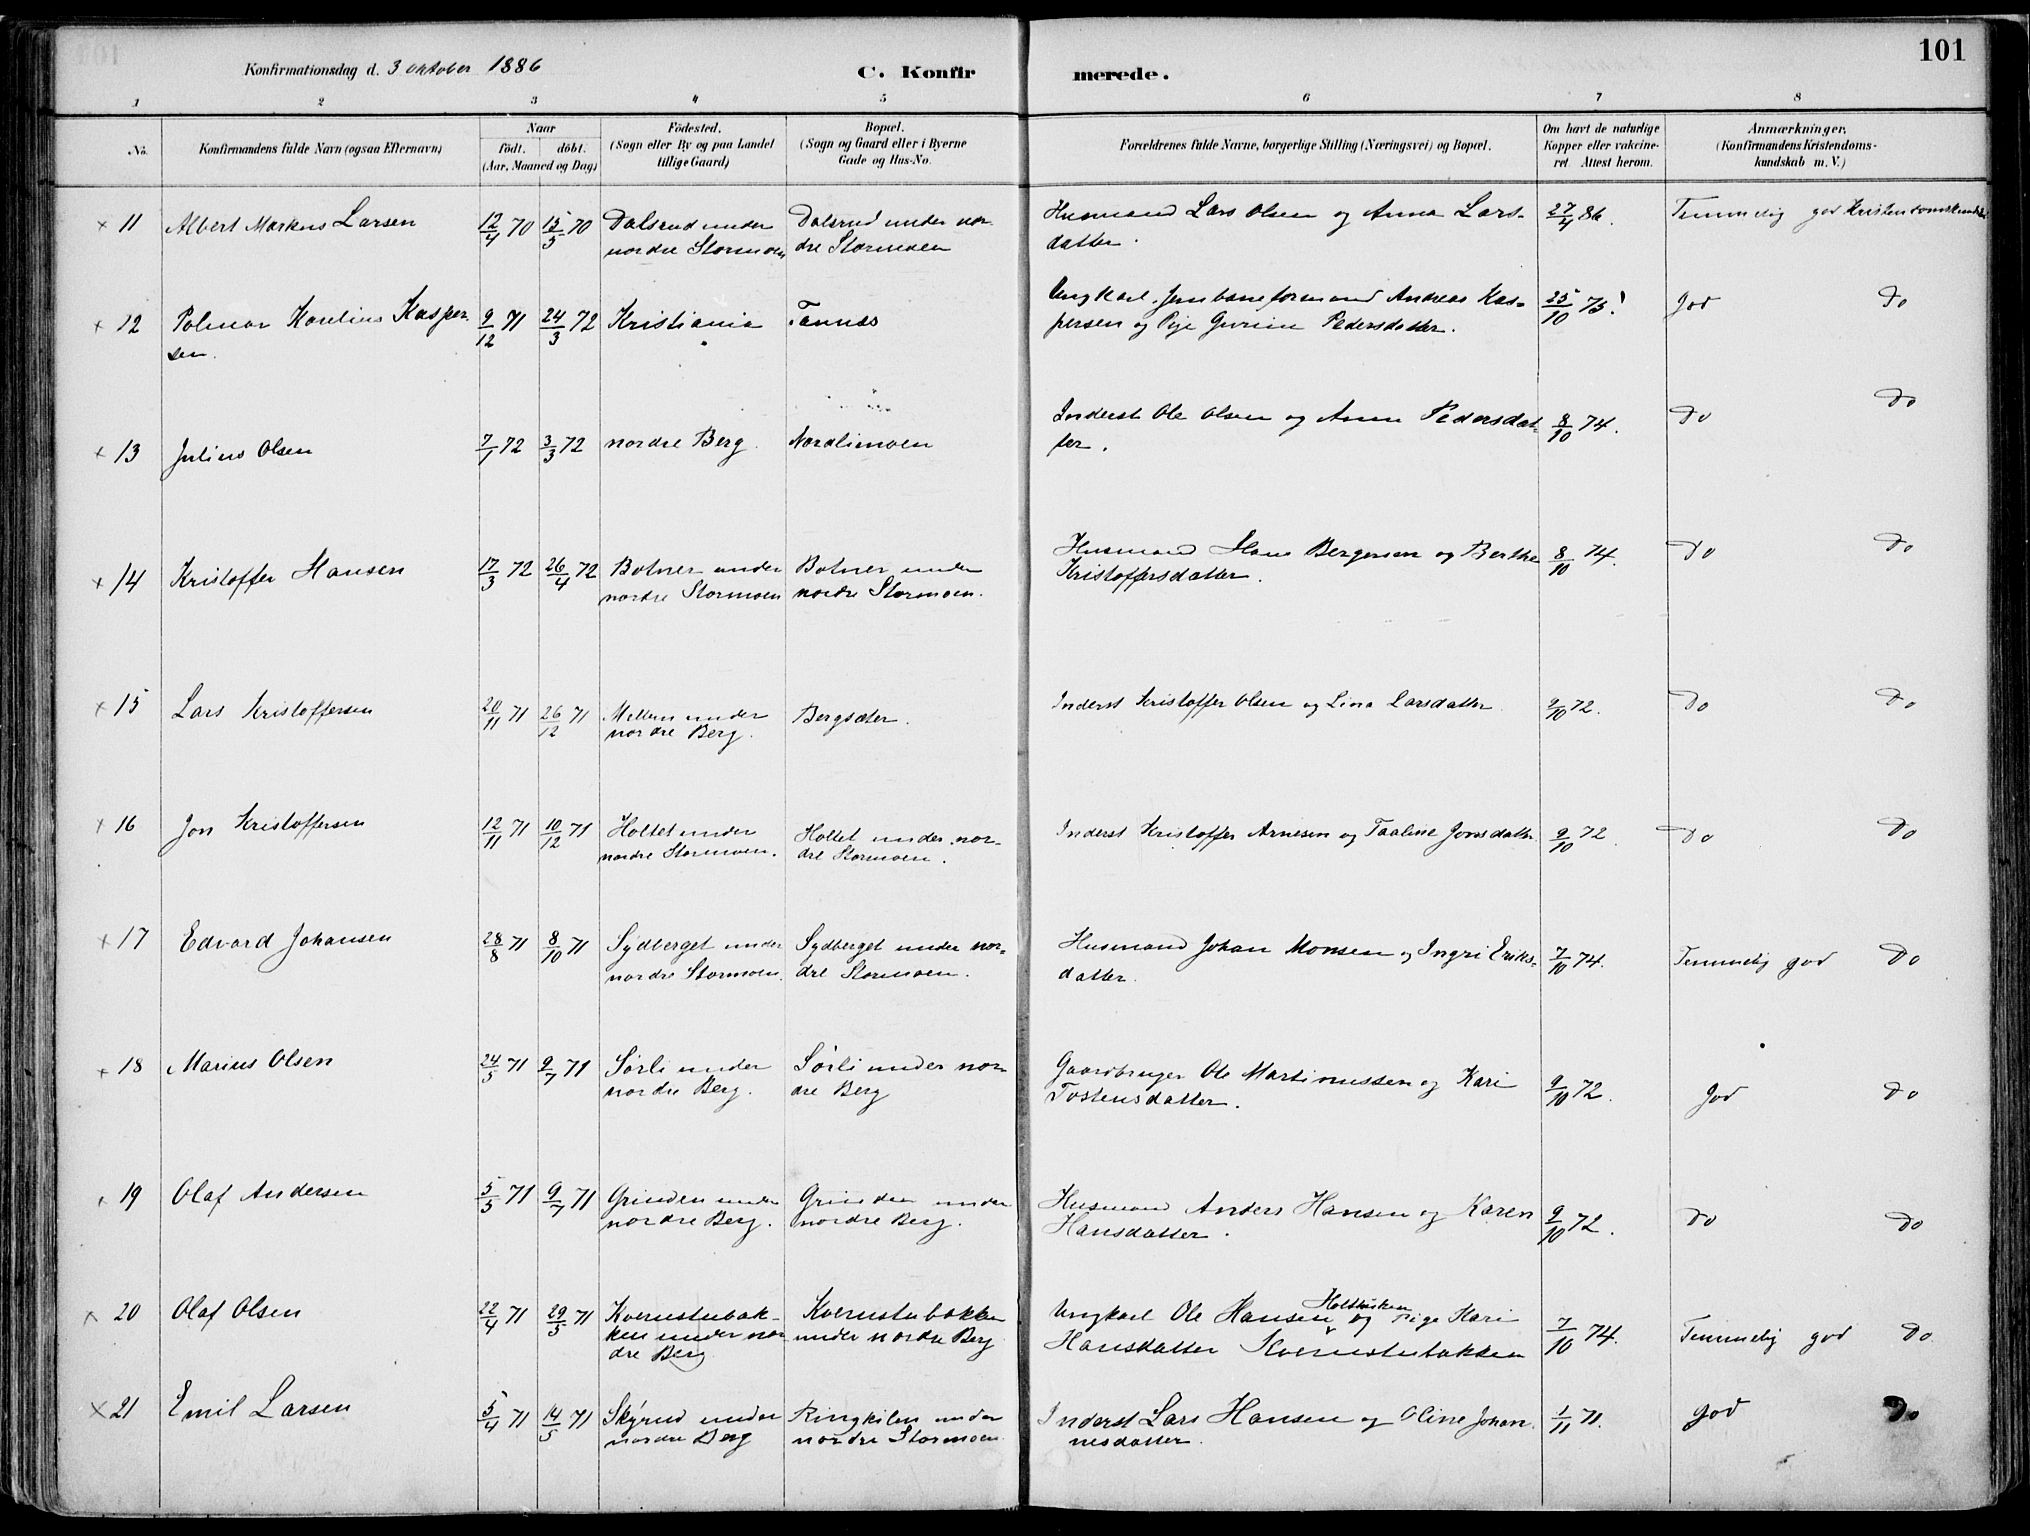 101
Konfirmationsdag d. 3 oktober 1886
C. Konfirmerede.
1 2 3 4 5 6 7 8
No. Konfirmandens fulde Navn (ogsaa Efternavn) Naar født. døbt. (Aar, Maaned og Dag) Fødested. (Sogn eller By og paa Landet tillige Gaard) Bopæl. (Sogn og Gaard eller i Byerne Gade og Hus-No. Forældrenes fulde Navne, borgerlige Stilling (Næringsvei) og Bopæl. Om havt de naturlige Kopper eller vakcineret. Attest herom. Anmærkninger. (Konfirmandens Kristendomskundskab m. V.)
× 11 Albert Markus Larsen 12/4 70 15/5 70 Dalsrud under Dalsrud under nor- Husmand Lars Olsen og Anna Lars- 27/4 86. Temmelig god Kristendomskundskab
nordre Stormoen dre Stormoen datter.
× 12 Kaspersen. 9/12 71 24/3 72 Kristiania Tannes Ungkarl Jernbaneformand Andreas Kas- 25/10 75. God Do
persen og Pige Pedersdatter.
× 13 Julius Olsen 7/1 72 3/3 72 nordre Berg. Nordlimoen Inderst Ole Olsen og Anne Pedersdat- 8/10 74. Do Do
ter.
× 14 Kristoffer Hansen 17/3 72 26/4 72 Botner under Botner under Husmand Hans Bergersen og Berthe 8/10 74. Do Do
nordre Stormoen nordre Stormoen. Kristoffersdatter.
× 15 Lars Kristoffersen 20/11 71 26/12 71 Mellem under Bergsæter. Inderst Kristoffer Olsen og Lina Larsdatter 9/10 72. Do Do
nordre Berg.
× 16 Jon Kristoffersen 12/11 71 10/12 71 Holtet under Holtet under nor- Inderst Kristoffer Arnesen og Taaline Jonsdatter 9/10 72 Do Do
nordre Stormoen. dre Stormoen.
× 17 Edvard Johansen 28/8 71 8/10 71 Sydberget under Sydberget under nor- Husmand Johan Monsen og Ingri Eriks- 7/10 74. Temmelig god Do
nordre Stormoen. dre Stormoen. datter.
× 18 Marius Olsen 24/5 71 9/7 71 Sørli under Sørli under nor- Gaardbruger Ole Martinussen og Kari 9/10 72. God Do
nordre Berg. dre Berg Tostensdatter.
× 19 Olaf Andersen 5/5 71 9/7 71 Grinden under Grinden under Husmand Anders Hansen og Karen 9/10 72. Do Do
nordre Berg. nordre Berg. Hansdatter.
× 20 Olaf Olsen 22/4 71 29/5 71 Kvernstubak- Kvernstubakken Ungkarl Ole Hansen og Pige Kari 7/10 74. Temmelig god Do
ken under nor under nordre Berg Hansdatter Kvernstubakken
dre Berg
× 21 Emil Larsen 5/4 71 14/5 71 Skyrud under Ringkilen under Inderst Lars Hansen og Oline Johan- 1/11 71. God Do
nordre Berg nordre Stormoen nesdatter.